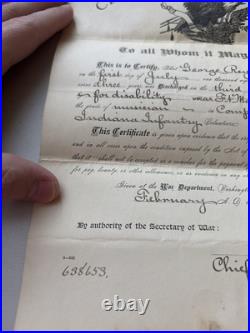 To all Whom it Ma
This is to Certify, That George Re
on the first day of July
three years, was Discharged on the third
for disability near
the grade of musician in Com
Indiana Infantry Volunteers
This Certificate is given upon evidence that the
and in all cases upon the condition imposed by the Act of
that it "shall not be accepted as a voucher for the payment
for pay, bounty, or other allowance, or as evidence in any
Given at the War Department, Washington
February A. D.
By authority of the Secretary of War:
Chief
638653.